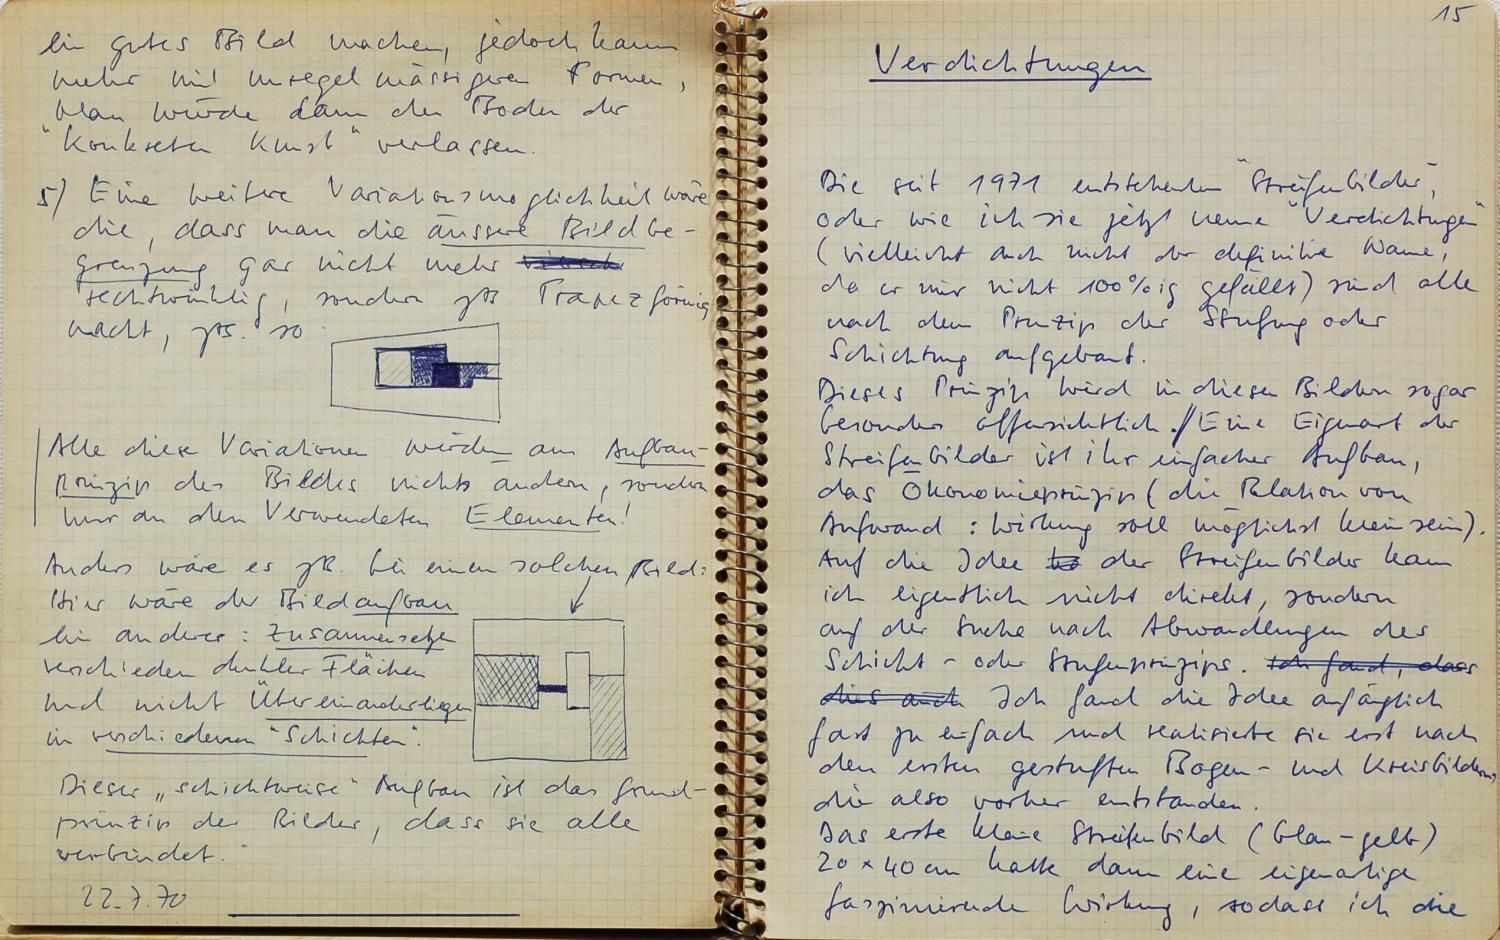 ein gutes Bild machen, jedoch kaum
mehr mit unregelmässigeren Formen,
Man würde dann den Boden der
"Konkreten Kunst" verlassen.
5) Eine weitere Variationsmöglichkeit wäre
die, dass man die äussere Bildbe-
grenzung gar nicht mehr
rechtwinklig, sondern zB Trapezförmig
macht, zB. so:
Alle diese Variationen würden am Aufbau-
prinzip des Bildes nichts ändern, sondern
nur an den Verwendeten Elementen!
Anders wäre es zB. bei einem solchen Bild:
Hier wäre der Bildaufbau
ein anderer: Zusammensetzen
verschieden dunkler Flächen
und nicht Übereinanderliegen
in verschiedenen "Schichten".
Dieser „schichtweise" Aufbau ist das Grund-
prinzip der Bilder, dass sie alle
verbindet.
22.7.70
15
Verdichtungen
Die seit 1971 entstehenden "Streifenbilder",
oder wie ich sie jetzt nenne "Verdichtungen"
(vielleicht auch nicht der definitive Name,
da er mir nicht 100%ig gefällt) sind alle
nach dem Prinzip der Stufung oder
Schichtung aufgebaut.
Dieses Prinzip wird in diesen Bildern sogar
besonders offensichtlich.// Eine Eigenart der
Streifenbilder ist ihr einfacher Aufbau,
das Ökonomieprinzip (die Relation von
Aufwand : Wirkung soll möglichst klein sein).
Auf die Idee der Streifenbilder kam
ich eigentlich nicht direkt, sondern
auf der Suche nach Abwandlungen des
Schicht- oder Stufenprinzips. Ich fand, dass
dies auch Ich fand die Idee anfänglich
fast zu einfach und realisierte sie erst nach
den ersten gestuften Bogen- und Kreisbildern,
die also vorher entstanden.
Das erste kleine Streifenbild (blau-gelb)
20 x 40 cm hatte dann eine eigenartige
faszinierende Wirkung, sodass ich die